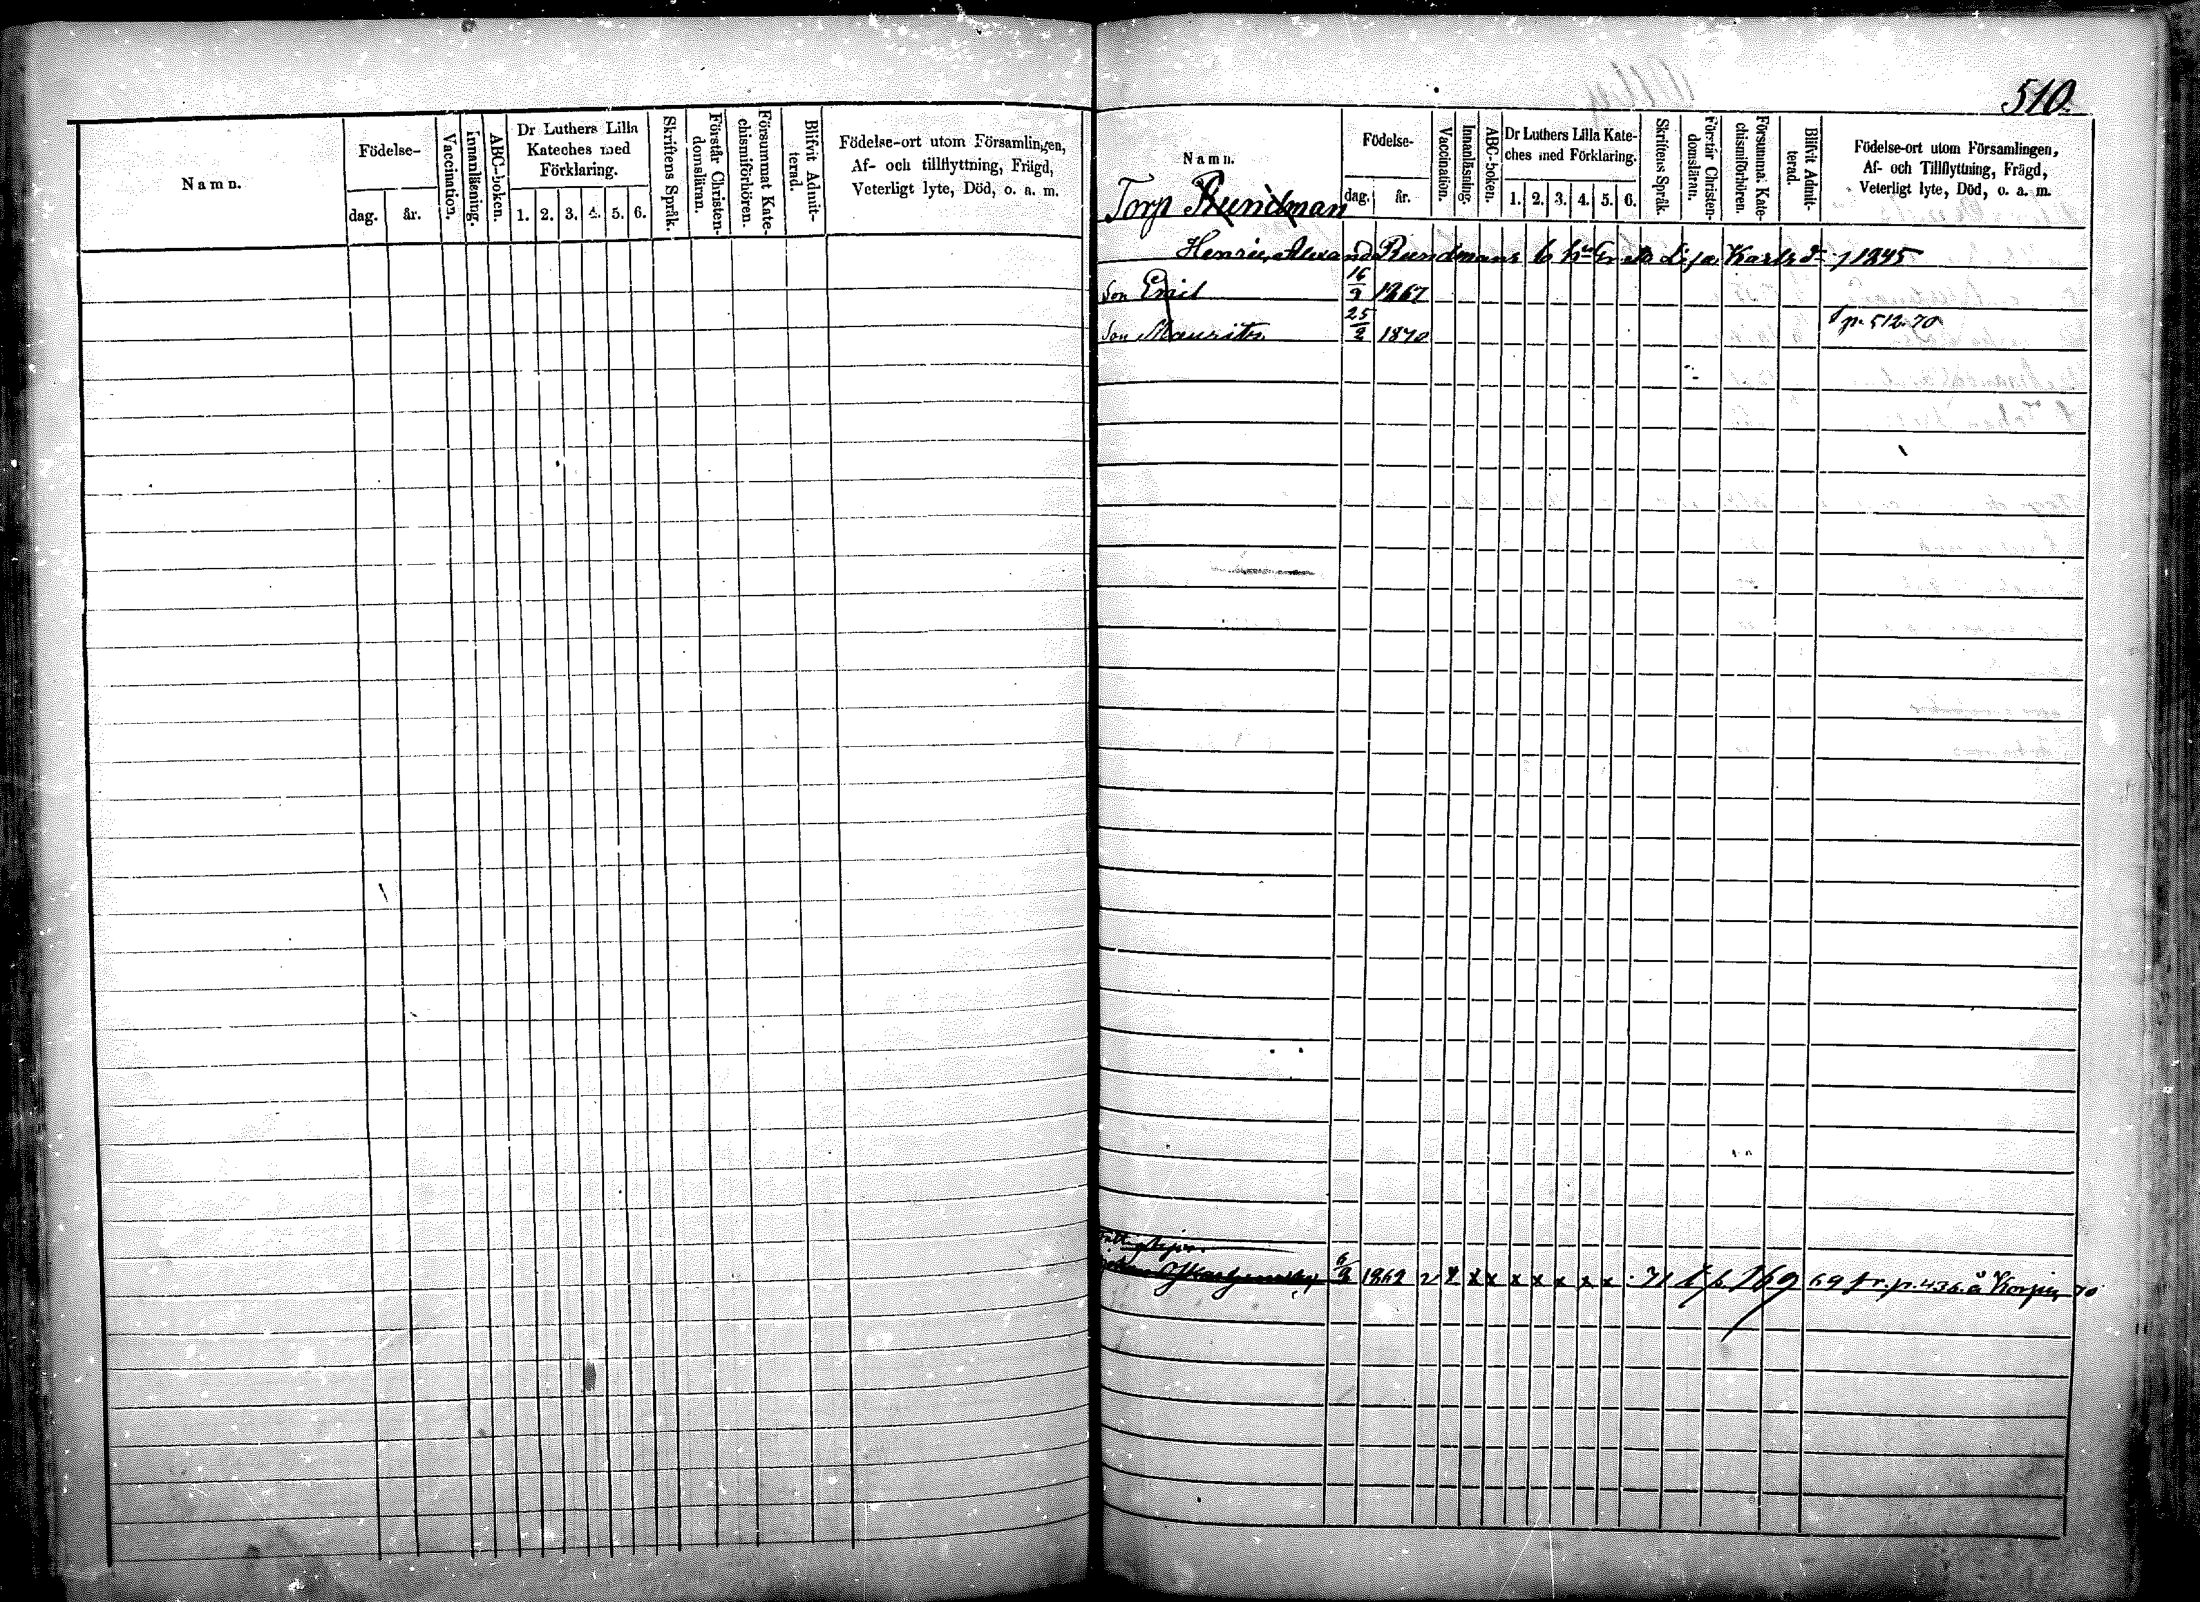 Namn.
Födelse-
dag. år.
Vaccination.
Innanläsning.
ABC-boken.
Dr Luthers Lilla
Kateches med
Förklaring.
1. 2. 3. 4. 5. 6.
Skriftens Språk.
Förstår Christen-
domsläran.
Försummat Kate-
chismiförhören.
Blifvit Admit-
terad.
Födelse-ort utom Församlingen,
Af- och tillflyttning, Frägd,
Veterligt lyte, Död, o. a. m.
510.
Namn.
Torp Rundman
Födelse-
dag. år.
Vaccination.
Innanläsning.
ABC-boken.
Dr Luthers Lilla Kate-
ches med Förklaring.
1. 2. 3. 4. 5. 6.
Skriftens Språk.
Förstår Christen-
domsläran.
Försummat Kate-
chismiförhören.
Blifvit Admit-
terad.
Födelse-ort utom Församlingen,
Af- och Tillflyttning, Frägd,
Veterligt lyte, Död, o. a. m.
Rundmans Lisa Karlsd. 1845
Son Emil 16/9 1867
p. 512. 70
Son Maurits 25/2 1870
1862 x x x x x x x 71 69 fr. p. 436. å Korpis 70